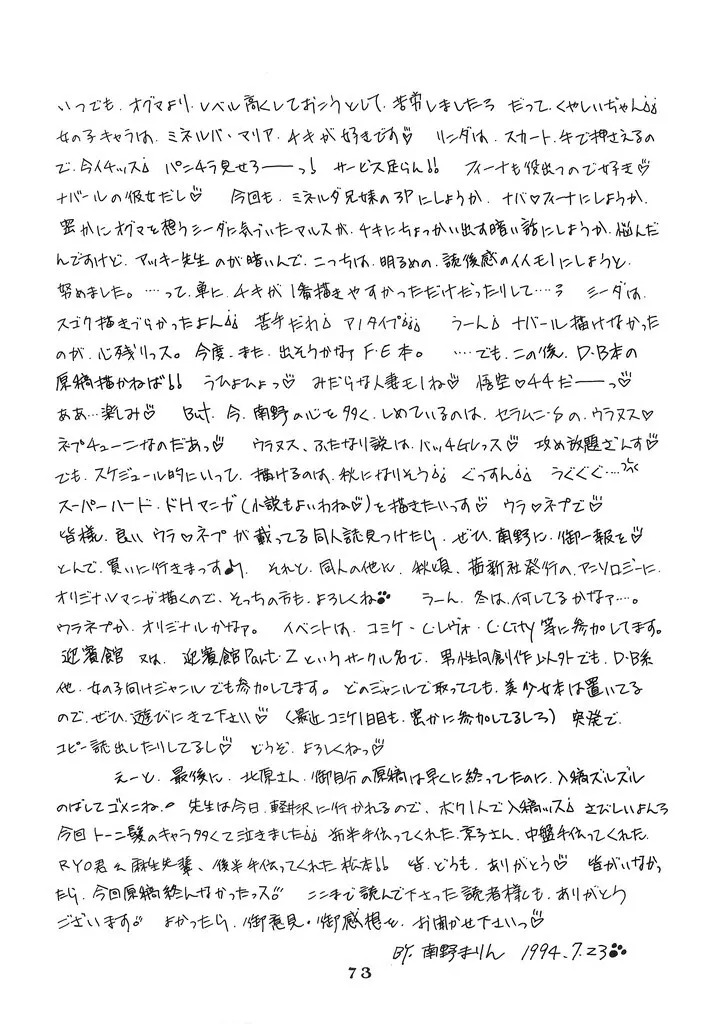 いつでも、オグマより、レベル高くしておこうとして、苦労しましたろ だって、くやしいぢゃん♪♪
女の子キャラは、ミネルバ・マリア・チキが好きです♡ リンダは、スカート、手で押さえるの
で、今イチッス♪ パンチラ見せろーーっ! サービス足らん!! フィーナも役出つので好き♡
ナバールの彼女だし♡ 今回も、ミネルダ兄妹の3Pにしようか、ナバ♡フィーナにしようか、
密かにオグマを想うシーダに気づいたマルスが、チキにちょっかい出す暗い話にしようか、悩んだ
んですけど、アッキー先生のが暗いんで、こっちは、明るめの、読後感のイイモノにしようと、
努めました。…って、単に、チキが1番描きやすかっただけだったりして…? シーダは、
スゴク描きづらかったよん♪♪ 苦手だわ♪ アノタイプ♪♪♪ うーん♪ ナバール描けなかった
のが、心残りっス。今度、また、出そうかなF・E本。 …でも、この後、D・B本の
原稿描かねば!! うひょひょっ♡ みだらな人妻モノね♡ 悟空♡チチだーーっ♡
ああ…楽しみ♡ But、今、南野の心を多く、しめているのは、セラムン・Sの、ウラヌス♡
ネプチューンなのだあっ♡ ウラヌス、ふたなり説は、バッチGレっス♡ 攻め放題ざんす♡
でも、スケジュール的にいって、描けるのは、秋になりそう♪♪ ぐっすん♪♪ うぐぐぐ…
スーパーハード・ドHマンガ(小説もよいわね♡)を描きたいっす♡ ウラ♡ネプで♡
皆様、良いウラ♡ネプが載ってる同人誌見つけたら、ぜひ、南野に、御一報を♡
とんで、買いに行きまっす♪ それと、同人の他に、秋頃、茜新社発行の、アンソロジーに、
オリジナルマンガ描くので、そっちの方も、よろしくね うーん、冬は、何してるかなァ…。
ウラネプか、オリジナルかなァ。 イベントは、コミケ・C・レヴォ・C・City等に参加してます。
迎賓館 又は、迎賓館Part・2というサークル名で、男性向創作以外でも、D・B系
他、女の子向けジャンルでも参加してます。どのジャンルで取ってても、美少女本は置いてる
ので、ぜひ、遊びにきて下さい♡ (最近コミケ1日目も、密かに参加してるしろ) 突発で、
コピー誌出したりしてるし♡ どうぞ、よろしくねっ♡
えーと、最後に、北原さん、御自分の原稿は早くに終ってたのに、入稿ズルズル
のばしてゴメンね。 先生は今日、軽井沢に行かれるので、ボク1人で入稿ッス♪ さびしいよんろ
今回トーン髪のキャラ多くて泣きました♪♪ 前半手伝ってくれた、京子さん、中盤手伝ってくれた、
RYO君&麻生先輩、後半手伝ってくれた松本!! 皆、どうも、ありがとう♡ 皆がいなかっ
たら、今回原稿終んなかったっス!! ここまで読んで下さった読者様にも、ありがとう
ございます!! よかったら、御意見・御感想を、お聞かせ下さいっ♡
BY. 南野まりん 1994.7.23
73